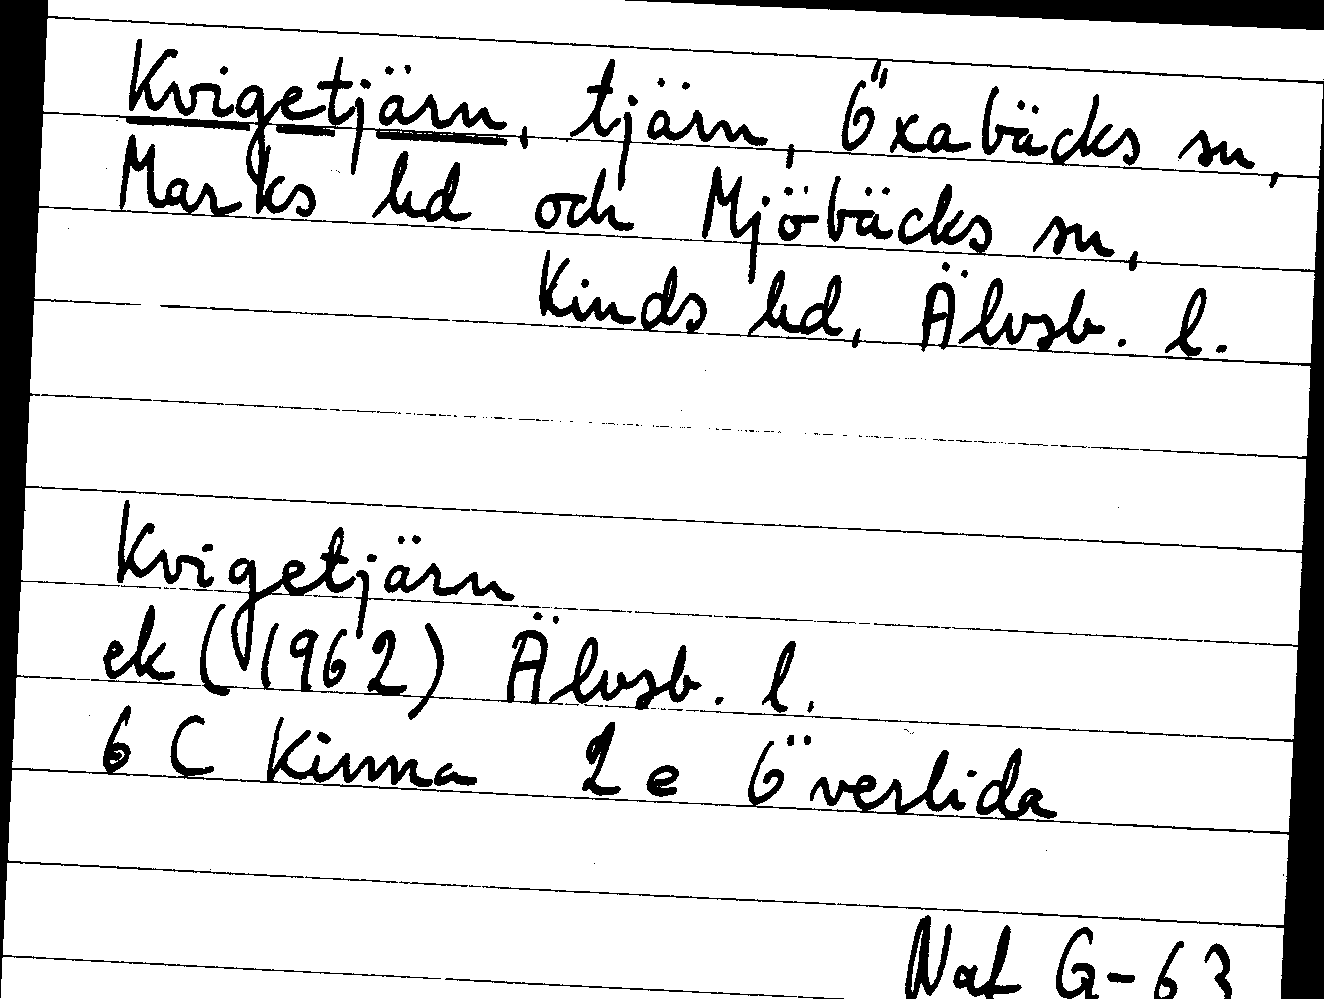 Kvigetjärn, tjärn, Öxabäcks sn,
Marks hd och Mjöbäcks sn,
Kinds hd, Älvsb. l.
Kvigetjärn
ek (1962) Älvsb. l.
6 C Kinna 2 e Överlida
Nat G-63